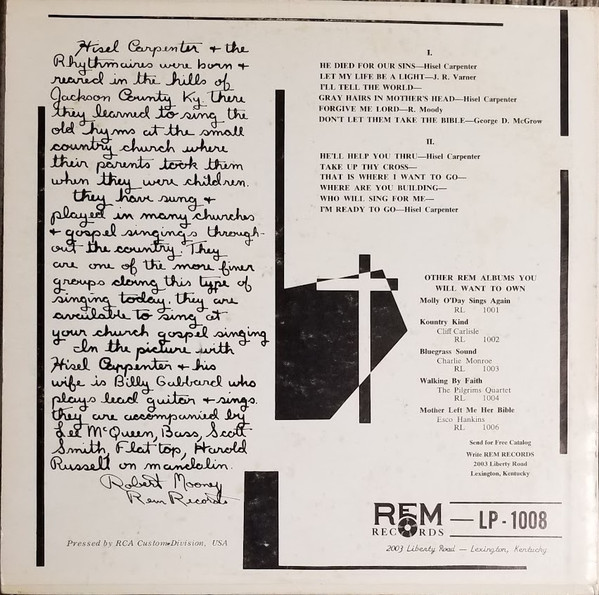 Hisel Carpenter & the
Rhythmaires were born &
reared in the hills of
Jackson County Ky. there
they learned to sing the
old hyms at the small
country church where
their parents took them
when they were children.
they have sung &
played in many churches
& gospel singings through-
out the country. They
are one of the more finer
groups doing this type of
singing today. they are
available to sing at
your church gospel singing
In the picture with
Hisel Carpenter & his
wife is Billy Gabbard who
plays lead guitar & sings.
they are accompanied by
Lee McQueen, Bass, Scott
Smith, Flat top, Harold
Russell on mandolin.
Robert Mooney
Rem Records
Pressed by RCA Custom Division, USA
I.
HE DIED FOR OUR SINS—Hisel Carpenter
LET MY LIFE BE A LIGHT—J. R. Varner
I'LL TELL THE WORLD—
GRAY HAIRS IN MOTHER'S HEAD—Hisel Carpenter
FORGIVE ME LORD—R. Moody
DON'T LET THEM TAKE THE BIBLE—George D. McGrow
II.
HE'LL HELP YOU THRU—Hisel Carpenter
TAKE UP THY CROSS—
THAT IS WHERE I WANT TO GO—
WHERE ARE YOU BUILDING—
WHO WILL SING FOR ME—
I'M READY TO GO—Hisel Carpenter
OTHER REM ALBUMS YOU
WILL WANT TO OWN
Molly O'Day Sings Again
RL 1001
Kountry Kind
Cliff Carlisle
RL 1002
Bluegrass Sound
Charlie Monroe
RL 1003
Walking By Faith
The Pilgrims Quartet
RL 1004
Mother Left Me Her Bible
Esco Hankins
RL 1006
Send for Free Catalog
Write REM RECORDS
2003 Liberty Road
Lexington, Kentucky
REM
RECORDS
LP-1008
2003 Liberty Road — Lexington, Kentucky